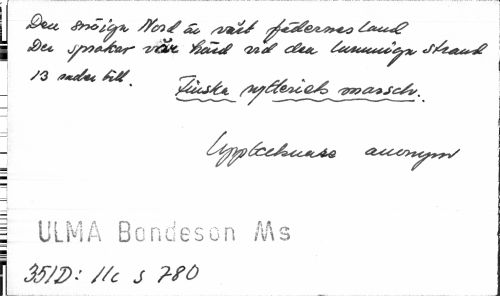 Den snöiga Nord är vårt fädernesland
Der sprakar vår härd vid den lummiga strand
13 rader till. Finska rytteriets marsch.
Upptecknare anonym
ULMA Bondeson Ms
351D: 11c s 780